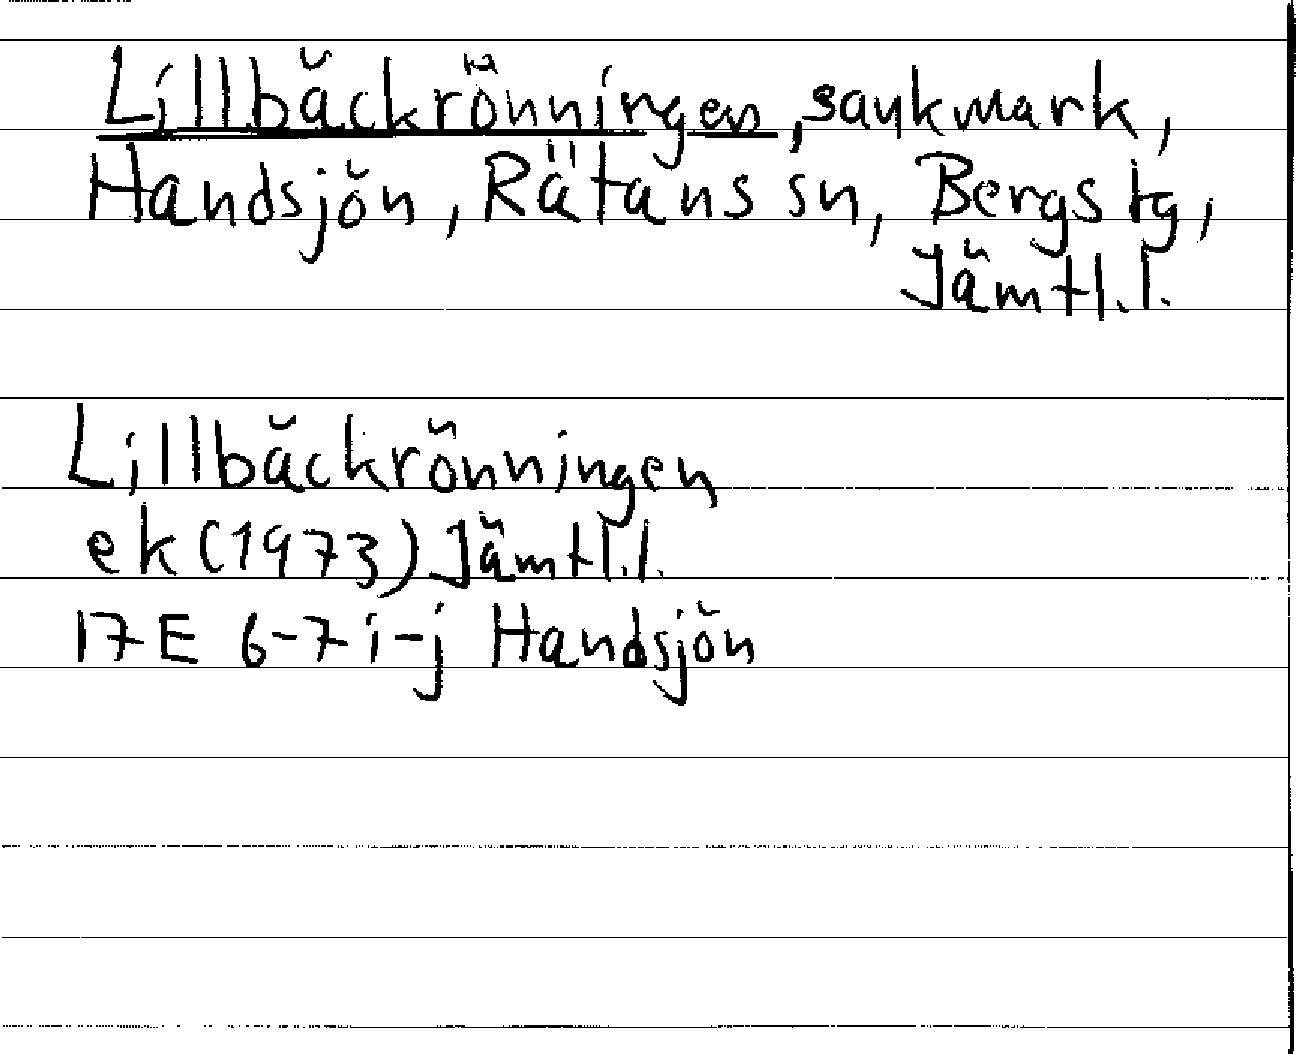 Lillbäckrönningen, sankmark,
Handsjön, Rätans sn, Bergs tg,
Jämtl.l.
Lillbäckrönningen
ek (1973) Jämtl.l.
17E 6-7 i-j Handsjön